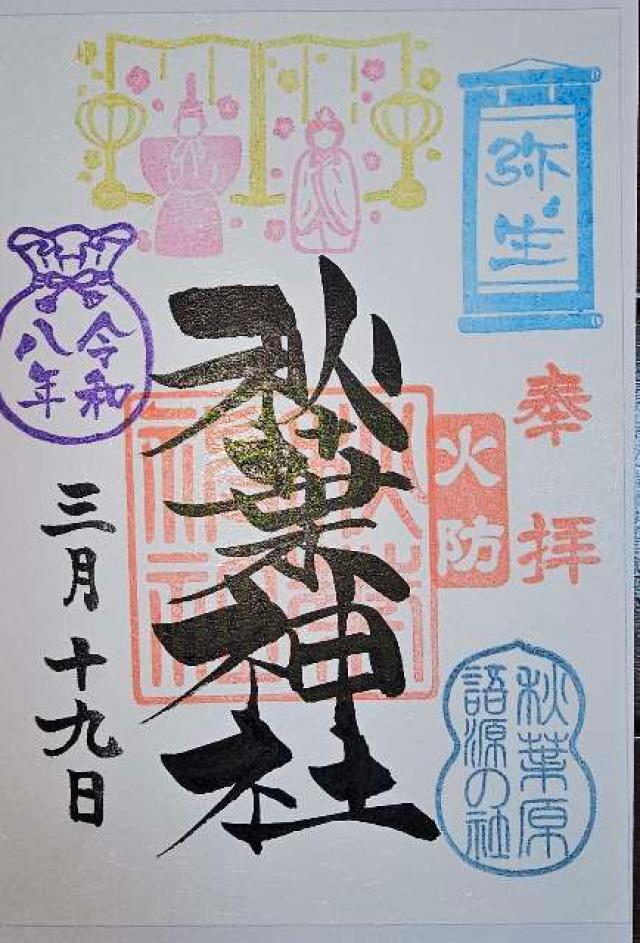 弥生
奉拝
火防
秋葉原
語源の社
秋葉神社
令和
八年
三月十九日